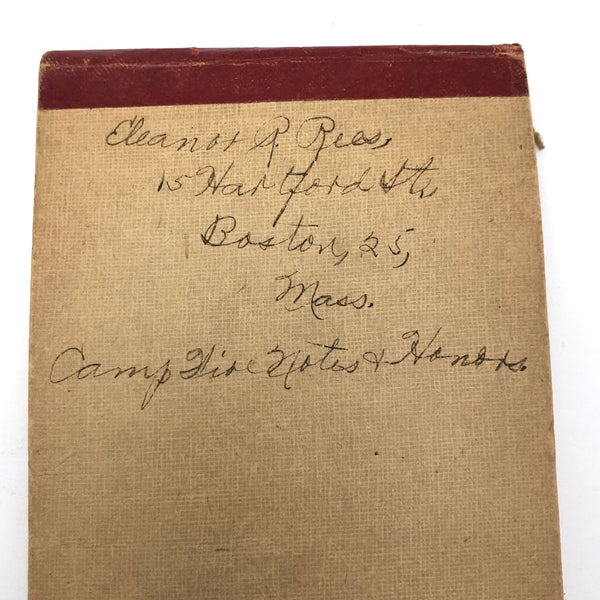 Eleanor R. Rees,
15 Hartford St.,
Boston, 25,
Mass.
Camp Fire Notes & Honors.